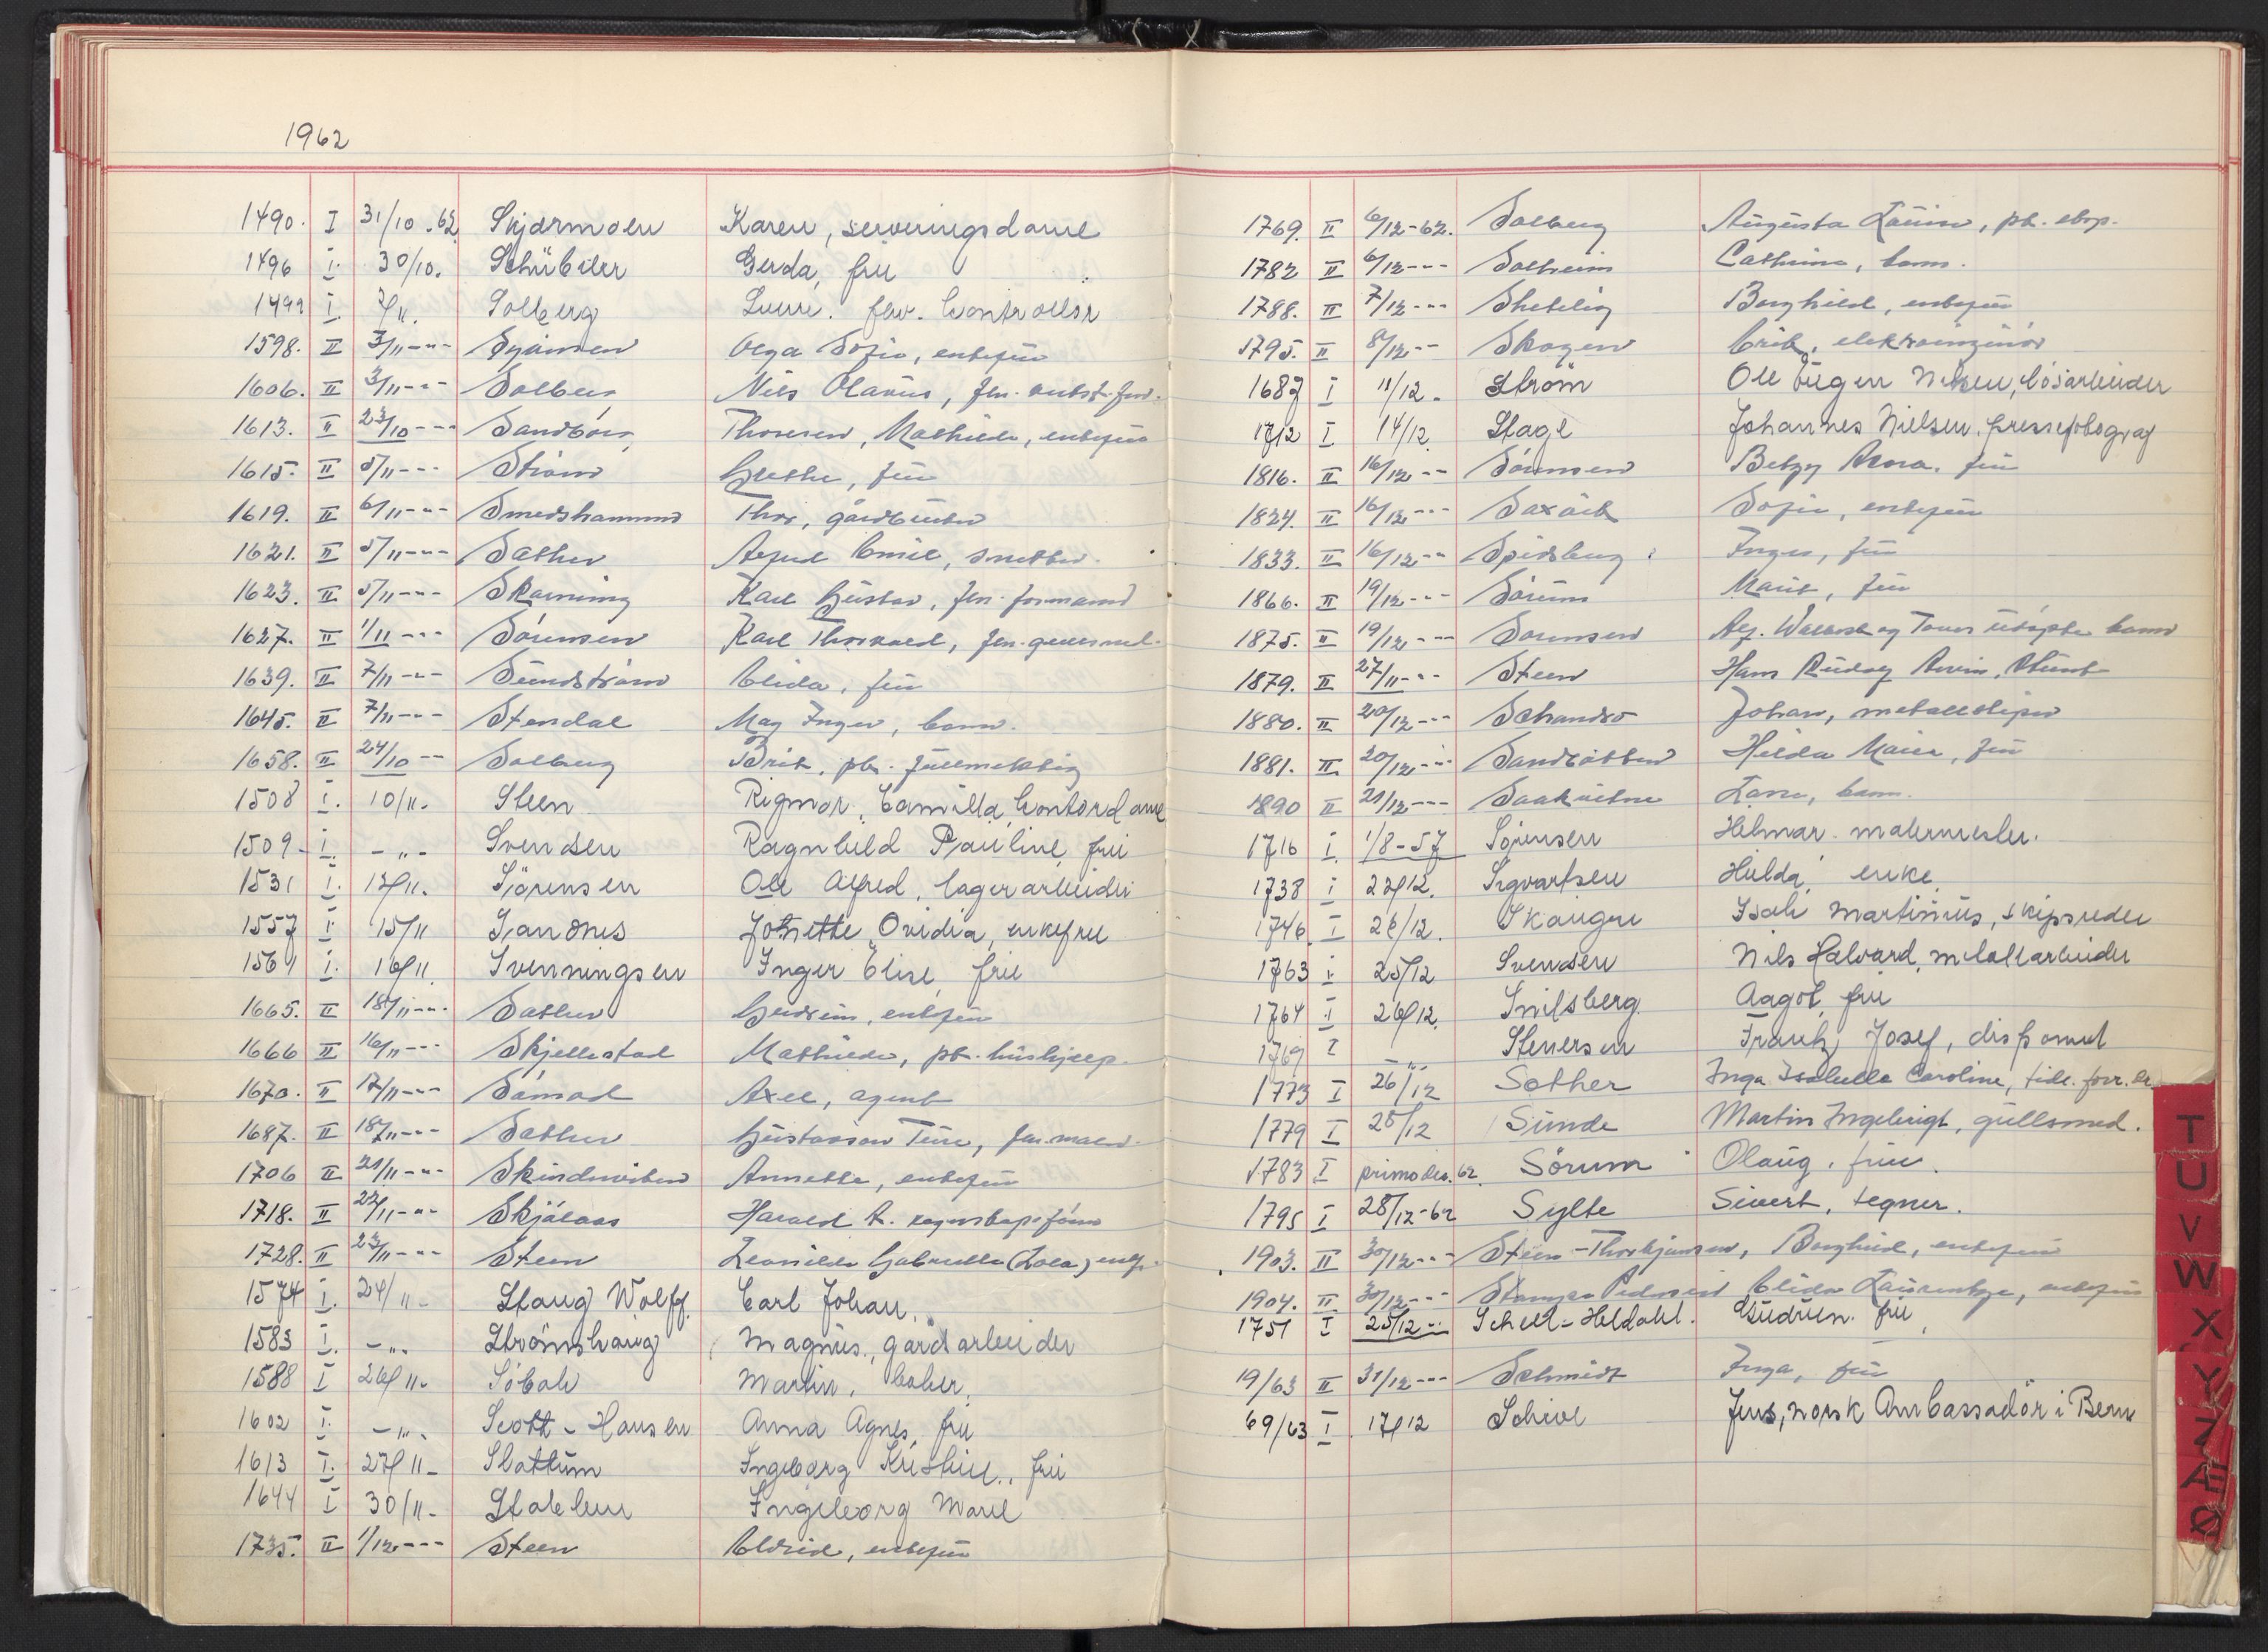 1962
1490. I 31/10-62 Skjærmoen Karen, serveringsdame
1496 I. 30/10. Schübeler Gerda, fru
1499 I. 7/11. Solberg fhv. kontrollør
1598. II 3/11 -"- Syvertsen Olga Sofie, enkefru
1606. II 3/11 -"- Solberg Nils Olaves, fhv.
1613. II 23/10 -"- Thoresen, Mathilde, enkefru
1615. II 5/11 -"- Strøm Grethe, fru
1619. II 6/11 -"- Smedshammer Thor, gårdbruker
1621. II 5/11 -"- Sæther Emil, snekker
1623. II 5/11 -"- Skarning Karl Gustav, fhv. formann
1627. II 1/11 -"- Sörensen Karl Thorvald, fhv.
1639. II 7/11 -"- Sundström Elida, fru
1645. II 7/11 -"- Stendal May Inger, barn.
1658. II 24/10 -"- Solberg Brit, pb. fullmektig
1508 I. 10/11. Steen Rigmor Camilla, kontordame
1509 I. -"- Svendsen Ragnhild Pauline, fru
1531 I. 12/11. Sörensen Ole Alfred, lagerarbeider
1557 I. 15/11 Sandnes Jonette Ovidia, enkefru
1561 I. 16/11. Svenningsen Inger Elise, fru
1665. II 18/11 -"- Sæther Gudrun, enkefru
1666 II 16/11 -"- Skjellestad Mathilde, pb. hushjelp.
1670. II 17/11 -"- Sömod Axel, agent
1687. II 18/11 -"- Sæther Gustavson Ture, fhv. maler
1706 II 21/11 -"- Annette, enkefru
1718. II 22/11 -"- Skjålaas Harald A. regnskapsförer
1728. II 23/11 -"- Steen Leonilda Gabriella (Lola) enkf.
1574 I. 24/11 - Stang Wolff Carl Johan.
1583 I. -"- Strömshaug Magnus, gårdarbeider
1588 I 26/11. Martin, baker.
1602 I. -"- Scott-Hansen Anna Agnes, fru
1613 I. 27/11- Slattum Ingeborg Kristine, fru
1644 I 30/11- Ingeborg Marie
1735. II 1/12 -"- Steen Eldrid, enkefru
1769. II 6/12-62. Solberg Augusta Louise, pb. eksp.
1782 II 6/12 -"- Solheim Cathrine, barn.
1788. II 7/12 -"- Shetelig Borghild, enkefru
1795. II 8/12 -"- Skogen Erik, elektroingeniör
1687 I 11/12. Ström Ole Eugen Nilsen, løsarbeider
1712 I 14/12 Stage Johannes Nielsen, pressefotograf
1816. II 16/12 -"- Sörensen Betzy fru
1824. II 16/12 -"- Saxvik Sofie, enkefru
1833. II 16/12 -"- Spidsberg Inger, fru
1866. II 19/12 -"- Sörum Marit, fru
1875. II 19/12 -"- Sörensen og Toves udöpte barn
1879. II 27/11 -"- Steen Hans Rudolf
1880. II 20/12 -"- Johan, metallsliper
1881. II 20/12 -"- Sandbakken Hilda Marie, fru
1890 II 21/12 -"- barn.
1716 I. 1/8-57 Sörensen Helmar. malermester.
1738 I 22/12. Sigvartsen Hulda, enke
1746 I 26/12. Skaugen Isak Martinius, skipsreder
1763 I. 25/12 Svendsen Nils Halvard, metallarbeider
1764 I 26/12. Snilsberg. Aagot, fru
1769 I -"- Stenersen Frantz Josef, disponent
1773 I 26/12 Sæther Inga Isabella Caroline, tidl. forr.
1779 I 28/12 Sunde Martin Ingebrigt, gullsmed.
1783 I primo des. 62. Sörum Olaug, frue.
1795 I 28/12-62 Sylte Sivert, tegner.
1903. II 30/12 -"- Steen-Thorbjørnsen, Borghild, enkefru
1904. II 30/12 -"- Elida Laurentze, enkefru
1751 I 25/12 -"- Schell-Heldahl. Gudrun. fru
19/63 II 31/12 -"- Schmidt Inga, fru
69/63 I 17/12 Schive Jens, norsk Ambassadör i Bern
T
U
V
W
X
Y
Z
Æ
Ø